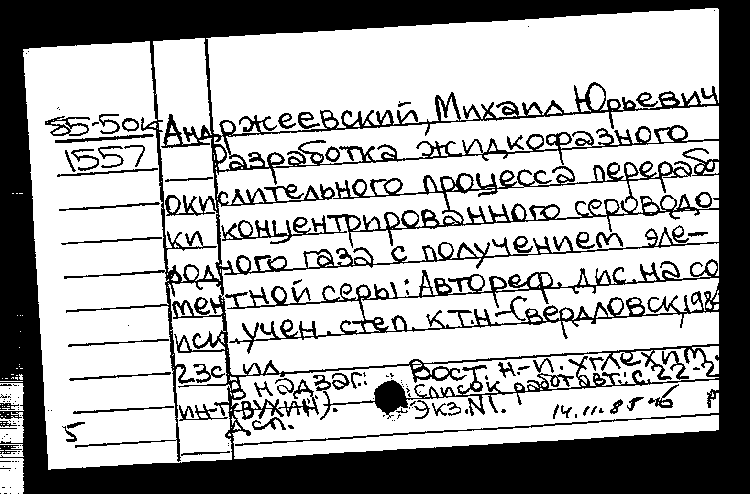 85-50к Андржеевский, Михаил Юрьевич
1557 Разработка жидкофазного
окислительного процесса перерабо
ки концентрированного сероводо-
родного газа с получением эле-
ментной серы: Автореф. дис. на со
иск. учен. степ. к.т.н.-Свердловск, 198
23с. ил.
В надзаг: Вост. н.-и. углехим.
ин-т (ВУХИН). Список работ авт.: с. 22-2
Д.сп. Экз. N1. 14.11.85
5